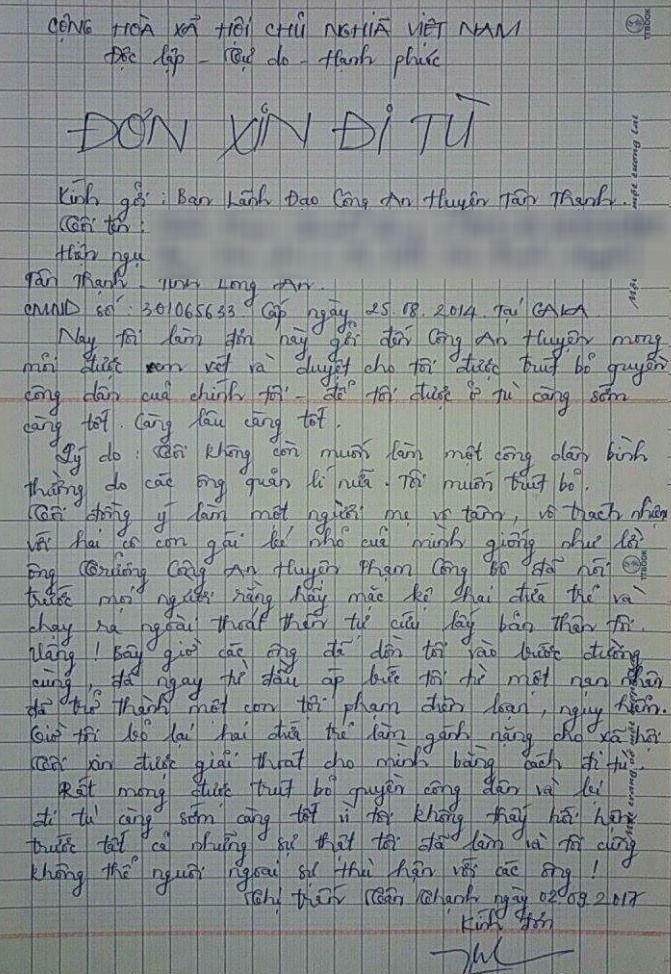 CỘNG HOÀ XÃ HỘI CHỦ NGHĨA VIỆT NAM
Độc lập - Tự do - Hạnh phúc
ĐƠN XIN ĐI TÙ
Kính gởi : Ban Lãnh Đạo Công An Huyện Tân Thạnh.
Tôi tên :
Hiện ngụ
Tân Thạnh - Tỉnh Long An.
CMND số : 301065633. Cấp ngày 25.08.2014. Tại CALA
Nay tôi làm đơn này gởi đến Công An Huyện mong
mỏi được xem xét và duyệt cho tôi được truất bỏ quyền
công dân của chính tôi - để tôi được ở tù càng sớm
càng tốt. Càng lâu càng tốt.
Lý do : Tôi không còn muốn làm một công dân bình
thường do các ông quản lí nữa. Tôi muốn truất bỏ.
Tôi đồng ý làm một người mẹ vô tâm, vô trách nhiệm
với hai cô con gái bé nhỏ của mình giống như lời
ông Trưởng Công An Huyện Phạm Công đã nói
trước mọi người rằng hãy mặc kệ hai đứa trẻ và
chạy ra ngoài thoát thân tự cứu lấy bản thân tôi.
Vâng ! Bây giờ các ông đã dồn tôi vào bước đường
cùng, đã ngay từ đầu áp bức tôi từ một nạn nhân
đã trở thành một con tội phạm điên loạn, nguy hiểm.
Giờ tôi bỏ lại hai đứa trẻ làm gánh nặng cho xã hội
Tôi xin được giải thoát cho mình bằng cách đi tù.
Rất mong được truất bỏ quyền công dân và
đi tù càng sớm càng tốt vì tôi không thấy hối hận
trước tất cả những sự thật tôi đã làm và tôi cũng
không thể người ngoai sự thù hận với các ông !
Thị trấn Tân Thạnh ngày 02.09.2017
Kính đơn